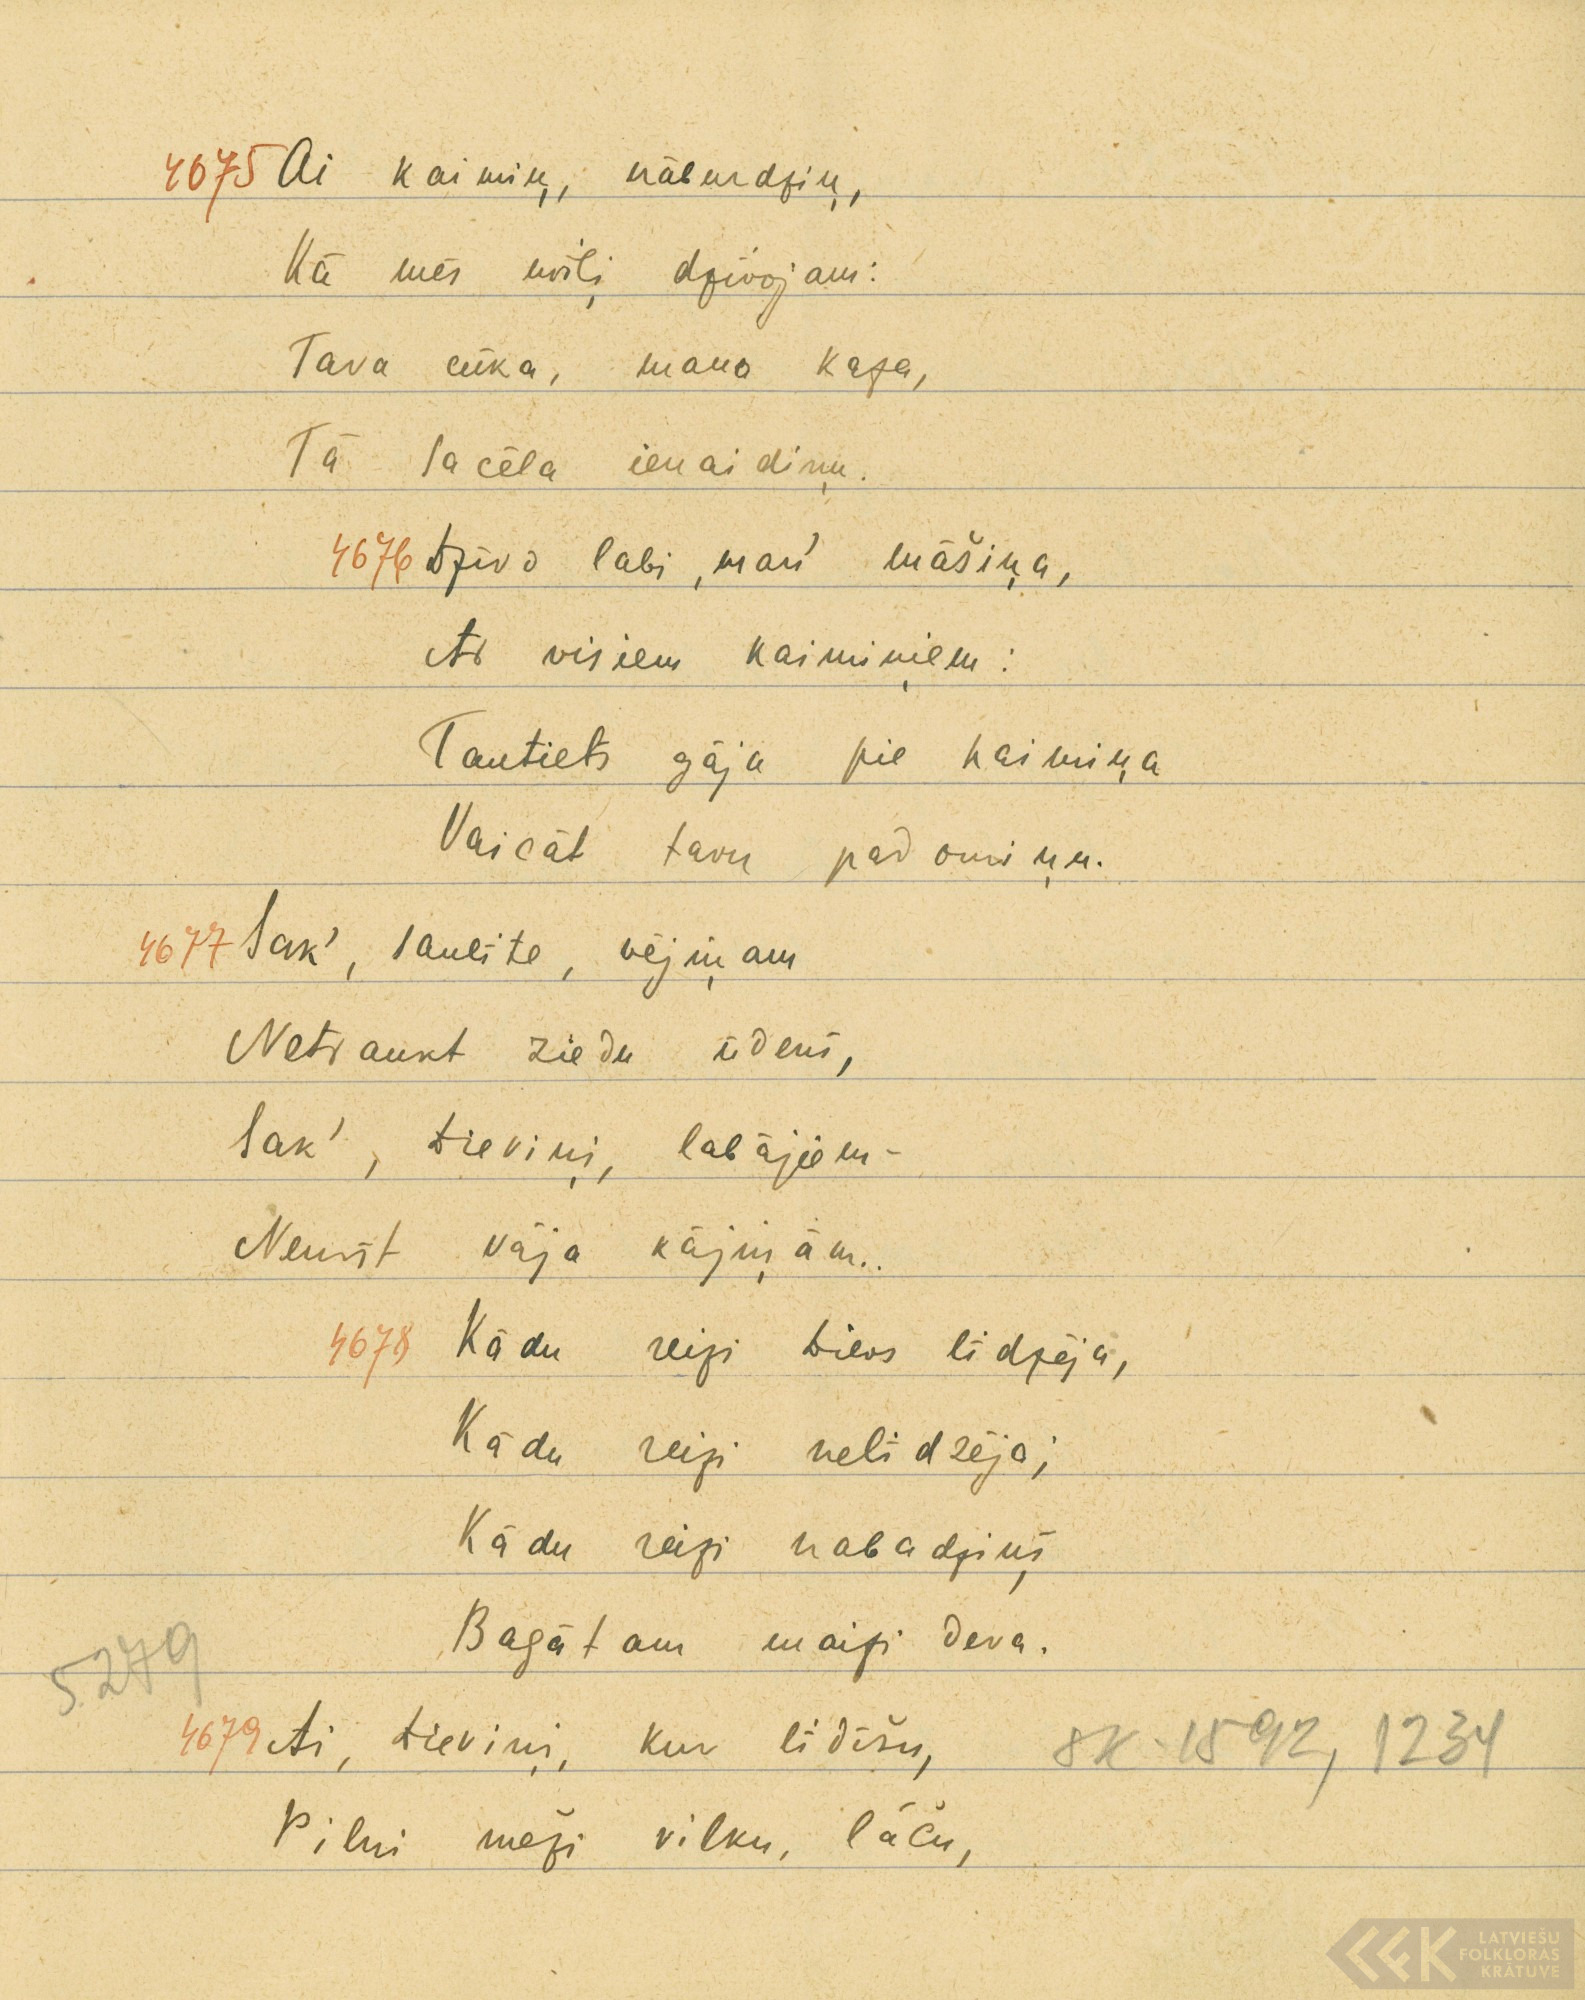 4675 Ai kaimiņ, nāburdziņ,
Kā mēs mīļi dzīvojam:
Tava cūka, mana kaza,
Tā sacēla ienaidiņu.
4676 Dzīvo labi, man' māšiņa,
Ar visiem kaimiņiem:
Tautiets gāja pie kaimiņa
Vaicāt tavu padomiņu.
4677 Sak', saulīte, vējiņam
Netraukt ziedu ūdenī,
Sak', Dieviņ, labājiem-
Nemīt vāja kājiņām..
4678 Kādu reizi Dievs līdzēja,
Kādu reizi nelīdzēja;
Kādu reizi nabadziņš
Bagātam maizi deva.
5279
4679 Ai, Dieviņ, kur līdīšu,
sk. 1592, 1234
Pilni meži vilku, lāču,
LATVIEŠU
FOLKLORAS
KRĀTUVE